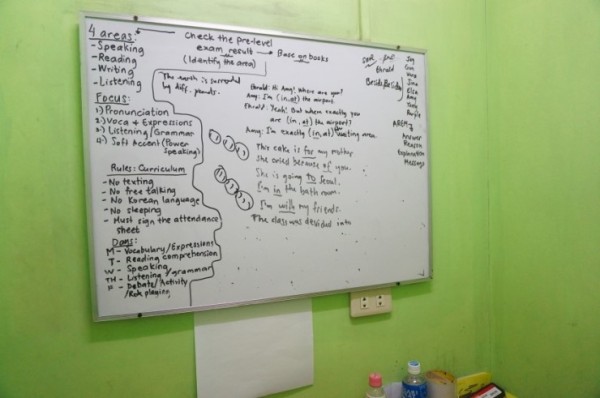 4 areas:
- Speaking
- Reading
- Writing
- Listening
Check the pre-level
exam result → Base on books
(Identify the area)
Focus:
1) Pronunciation
2) Voca & Expressions
3) Listening / Grammar
4) Soft Accent (Power
Speaking)
Rules: Curriculum
- No texting
- No free talking
- No Korean language
- No sleeping
- Must sign the attendance
sheet
Days:
M - Vocabulary/Expressions
T - Reading comprehension
W - Speaking
TH - Listening / grammar
F - Debate/Activity
/Role playing
The earth is surrounded
by diff.
Harold: Hi Amy! Where are you?
Amy: I'm (in, at) the airport.
Harold: Yeah! But where exactly you
are (in, at) the airport?
Amy: I'm exactly (in, at) the waiting area.
This cake is for my mother
She cried because of you.
She is going to Seoul.
I'm in the bath room.
I'm with my friends.
The class was decided into
Harold
Beside/Besides
Joy
June
Elsa
Amy
AREM →
Answer
Reason
Explanation
Message